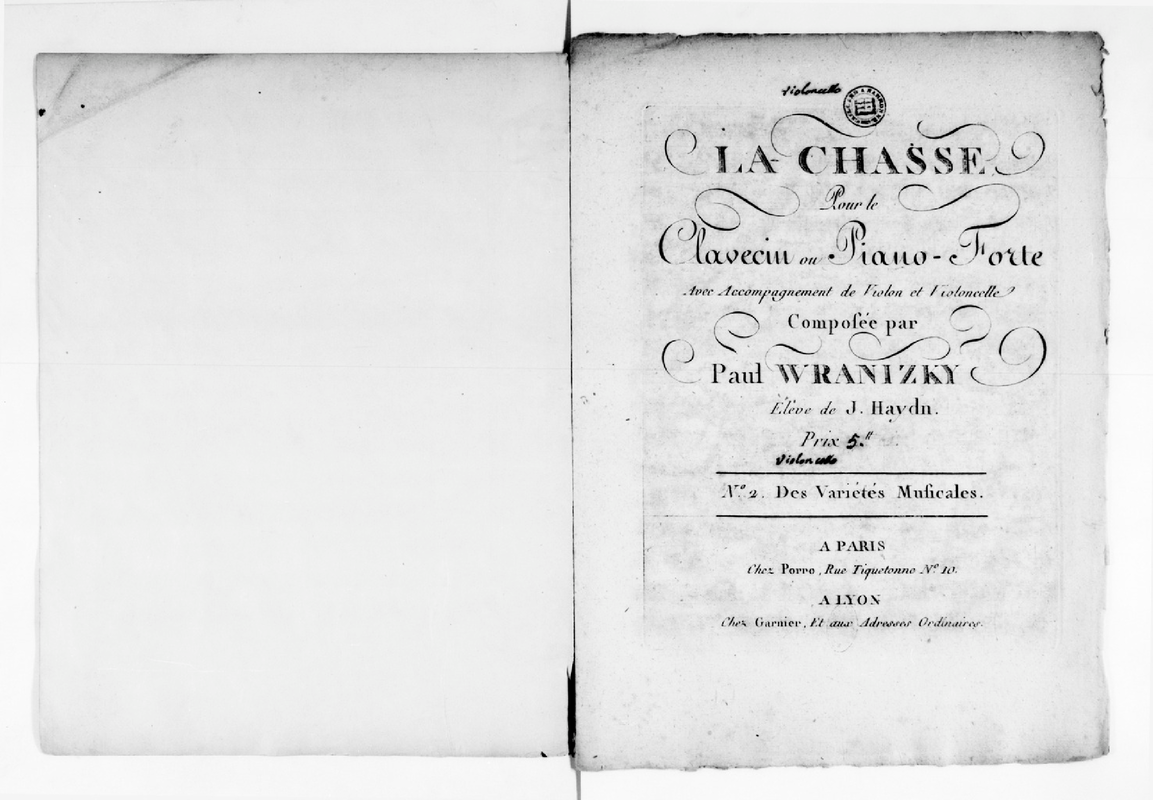 Violoncello
LA CHASSE
Pour le
Clavecin ou Piano-Forte
Avec Accompagnement de Violon et Violoncelle
Composée par
Paul WRANIZKY
Élève de J. Haydn.
Prix 5.ᶧᶧ
Violoncello
N.º 2. Des Variétés Musicales.
A PARIS
Chez Porro, Rue Tiquetonne Nº 10.
A LYON
Chez Garnier, Et aux Adresses Ordinaires.